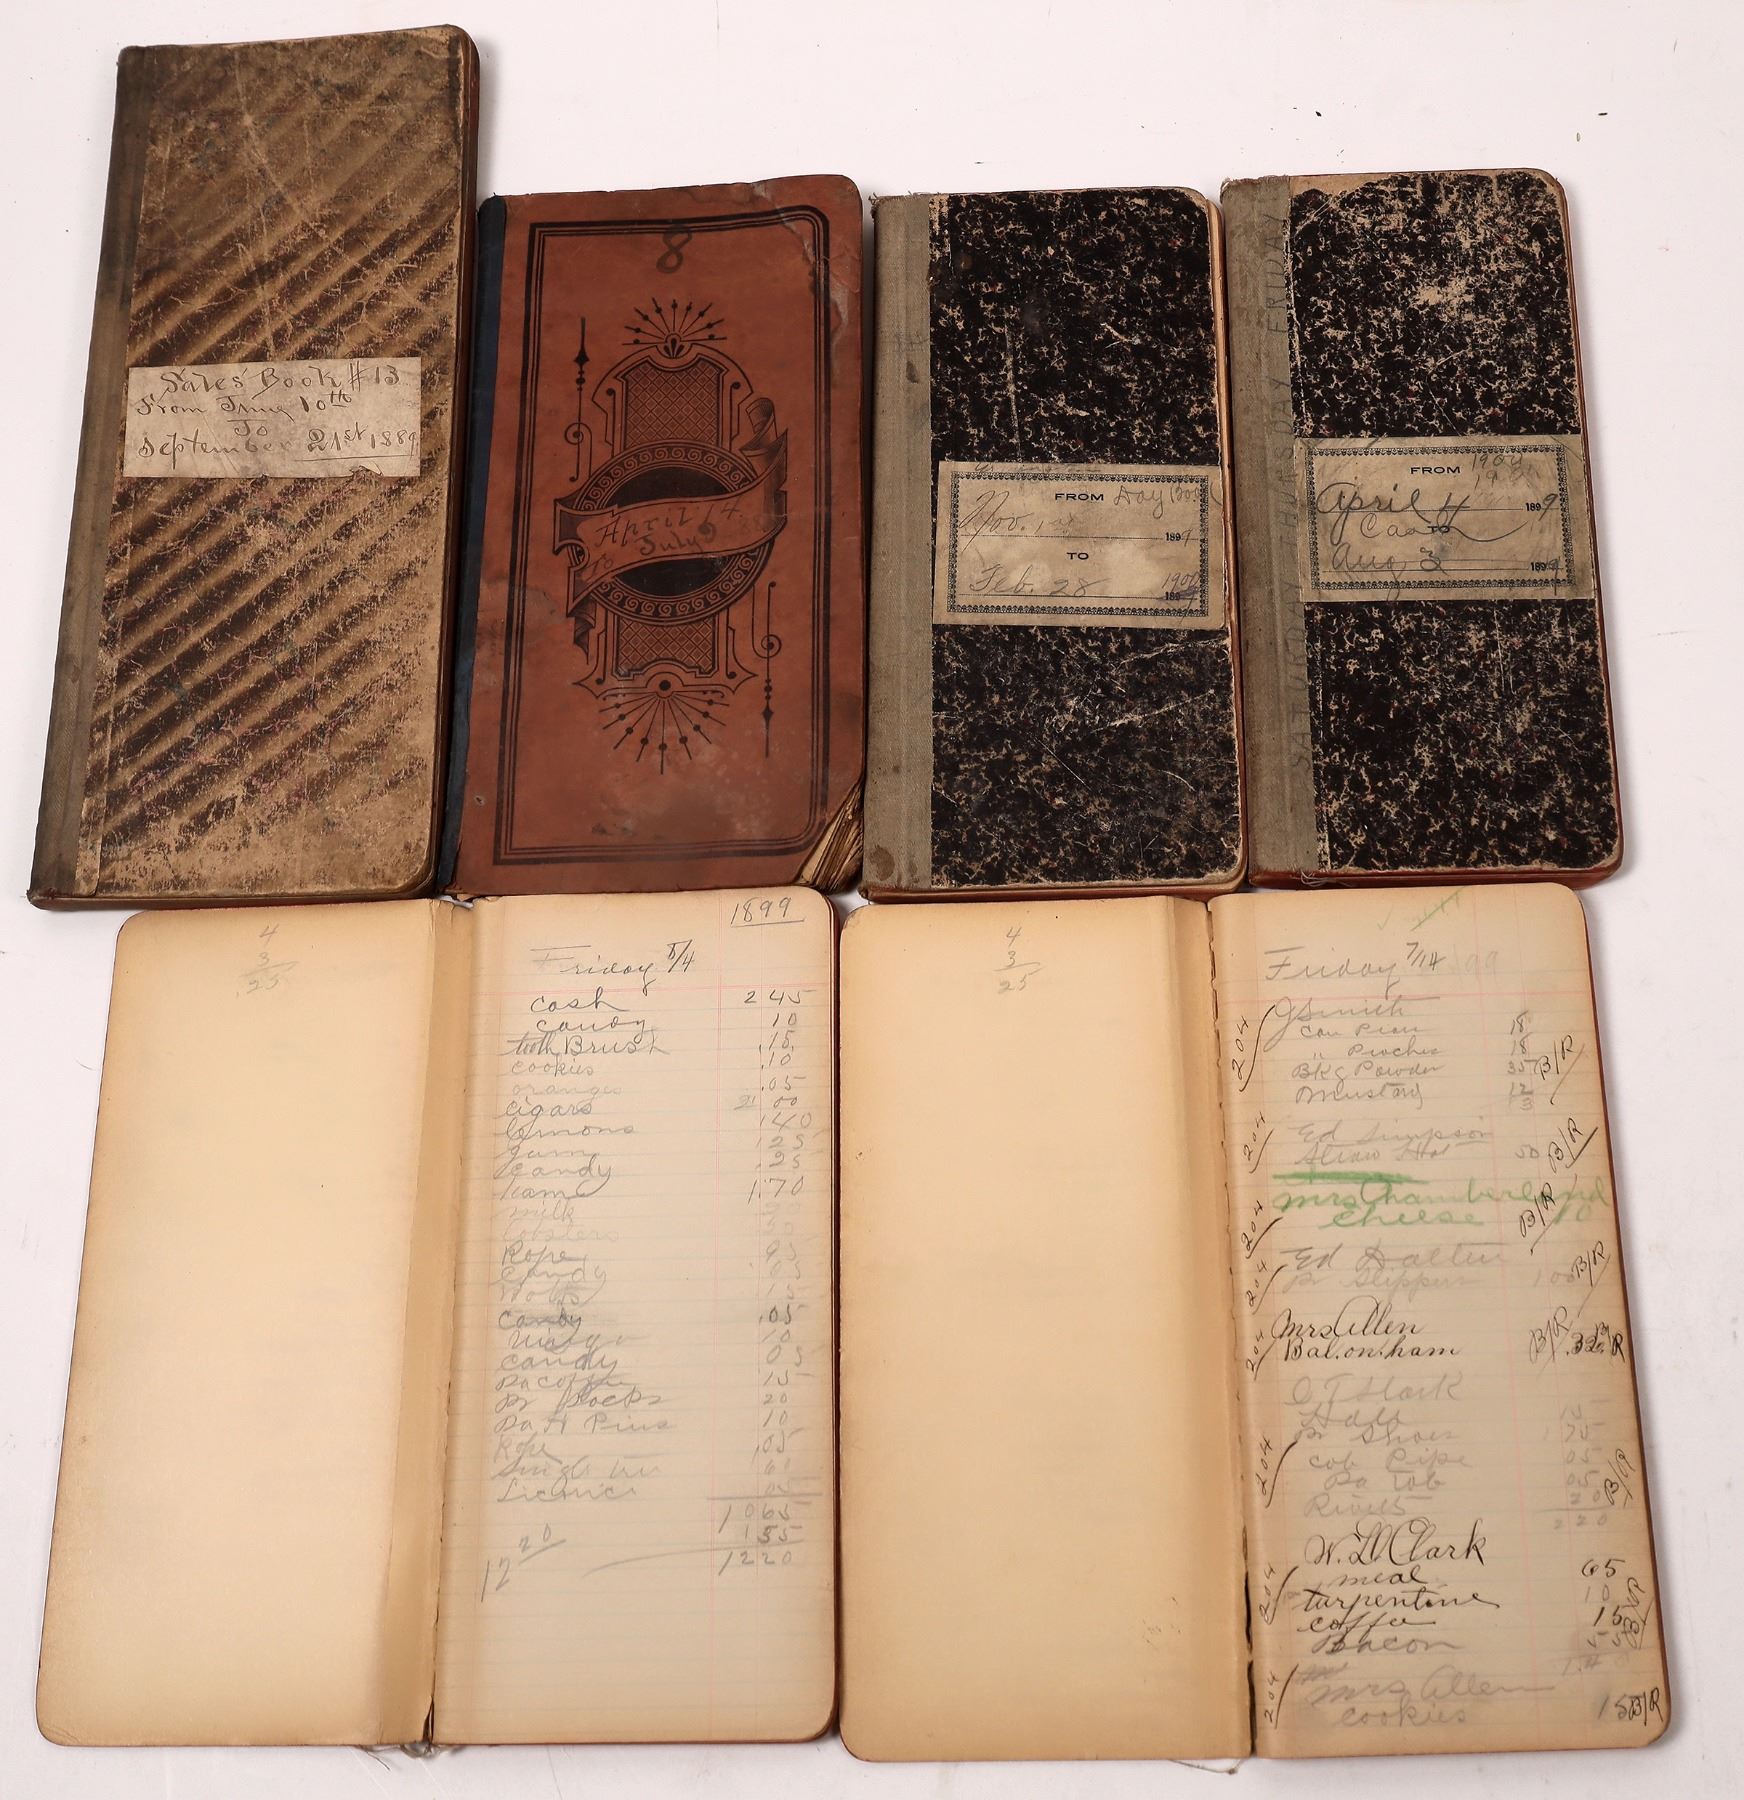 Sales Book #13
From June 10th
To
September 21st 1889
8
April 14.
To July 9
FROM Day Boo
Nov. 1st
1899
TO
Feb. 28
1900
189
SATURDAY THURSDAY FRIDAY
FROM 1900
April 4 1899
Cash
TO
Aug 3 189
4
3
.25
1899
Friday 8/4
cash 245
candy 10
tooth Brush .15
cookies .10
oranges .05
cigars 2 00
lemons .40
gum .25
candy .25
ham 1.70
milk
lobsters
Rope 95
candy 05
15
candy .05
10
candy 05
Pa coffee 15
Pr Socks 20
Pa H Pins 10
Rope .05
Single tree 60
Licorice 05
1065
155
1220
12 20
4
3
25
Friday 7/14 99
204
J Smith
Can Pears 18
" Peaches 18
Bkg Powder 35 B/R
Mustard 12
204
Ed Simpson
Straw Hat 50 B/R
204
Mrs Chamberlund
cheese 10 B/R
204
Ed Dalton
Pr Slippers 100 B/R
204
Mrs Allen
Bal.on.ham .32 B/R
204
Pr Shoes 1 75
cob Pipe 05
Pa tob 05
Rivets 20 B/R
2 20
204
W. H. Clark
meal 65
turpentine 10
coffee 15 B/R
Bacon
204
Mrs Allen
cookies 15 B/R